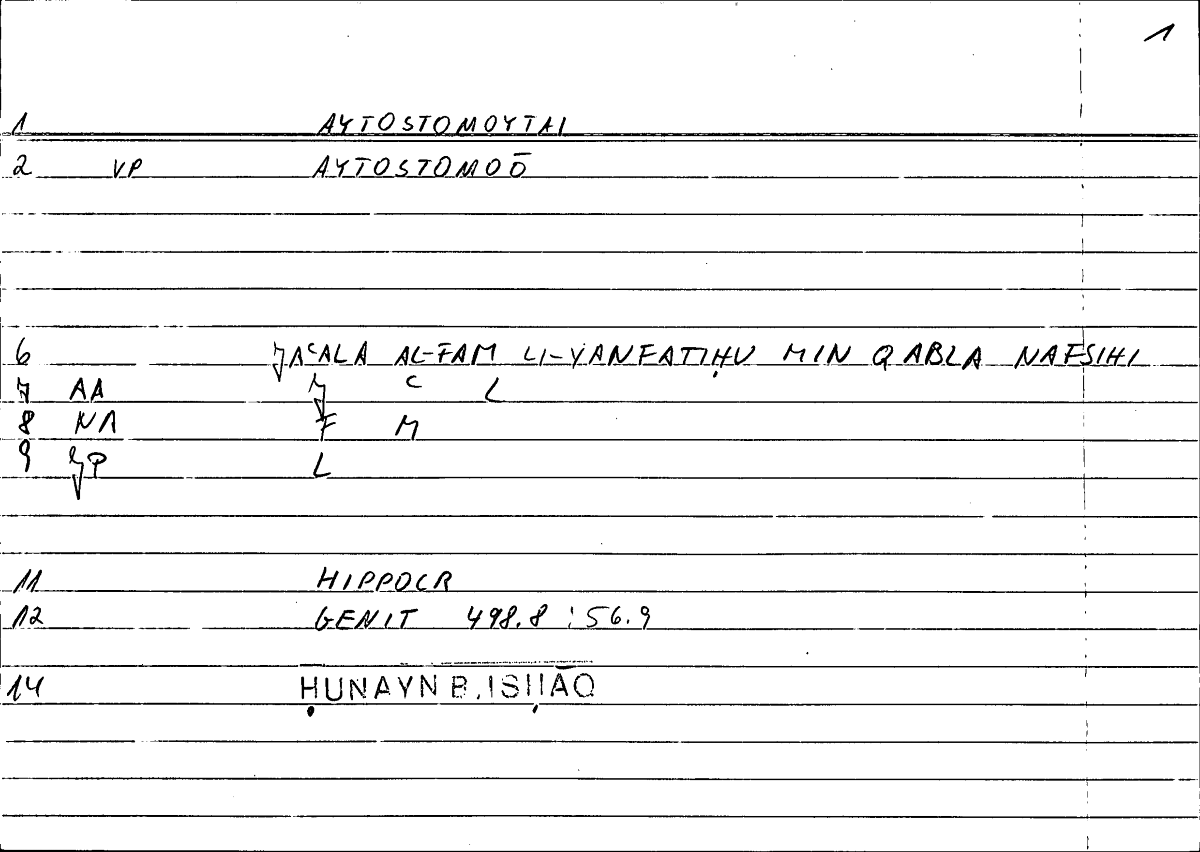 1
1 AYTOSTOMOYTAI
2 VP AYTOSTOMOŌ
6 ǦAʿALA AL-FAM LI-YANFATIḤU MIN QABLA NAFSIHI
7 AA Ǧ ʿ L
8 NA F M
9 ǦP L
11 HIPPOCR
12 GENIT 498.8 : 56.9
14 ḤUNAYN B. ISḤĀQ